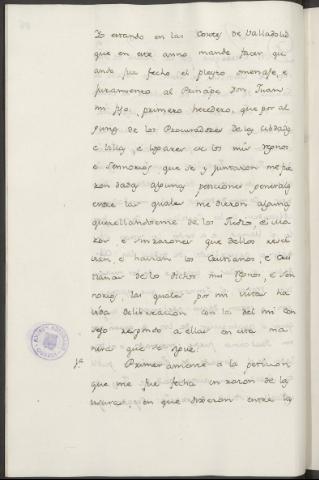 Yo estando en las Cortes de Valladolid
que en este anno mande facer, qu
ando fue fecho el pleyto omenage, e
juramento al Prinçipe Don Juan
mi fijo, primero heredero, que por al
gunos de los Procuradores de las cibdades
e villas, e logares de los mis regnos
e sennorios que se y juntaron me fue
ron dadas algunas peticiones generales
entre las quales me dieron algunas
querellandoseme de los Judios, e ma
los e sinrazones que dellos reçi
ben, e havian los Christianos, e Chris
tianas de los dichos mis regnos, e sen
norios, las quales por mi vistas ha
vida deliberacion con los del mi con
sejo respondo a ellas en esta ma
nera que se sigue.
1.ª Primeramente a la peticion
que me fue fecha en razon de las
usuras, en que dixeron entre las